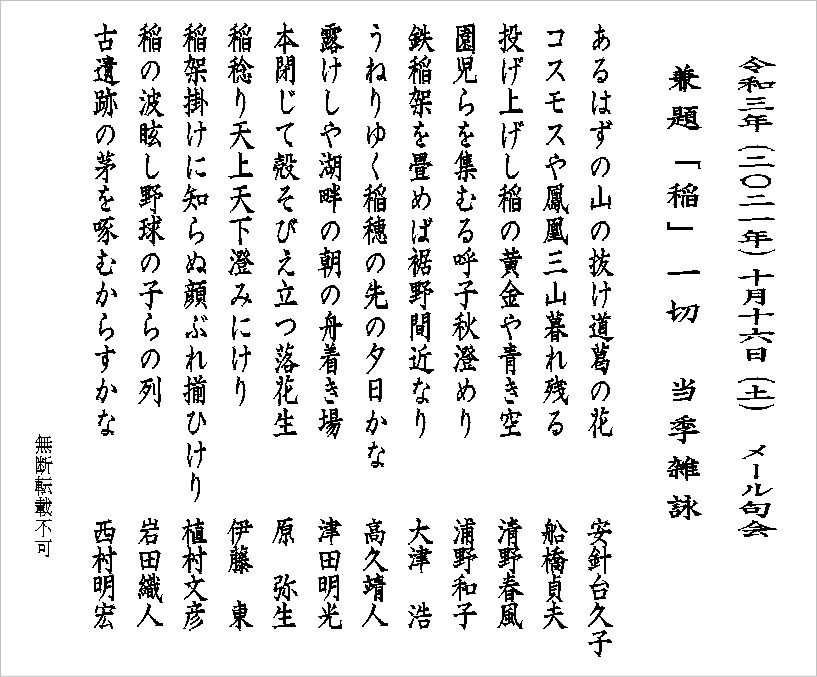 令和三年（二〇二一年）十月十六日（土）　メール句会
兼題「稲」一切　当季雑詠
あるはずの山の抜け道葛の花　安針台久子
コスモスや鳳凰三山暮れ残る　船橋貞夫
投げ上げし稲の黄金や青き空　清野春風
園児らを集むる呼子秋澄めり　浦野和子
鉄稲架を畳めば裾野間近なり　大津　浩
うねりゆく稲穂の先の夕日かな　高久靖人
露けしや湖畔の朝の舟着き場　津田明光
本閉じて殻そびえ立つ落花生　原　弥生
稲稔り天上天下澄みにけり　伊藤　東
稲架掛けに知らぬ顔ぶれ揃ひけり　植村文彦
稲の波眩し野球の子らの列　岩田織人
古遺跡の茅を啄むからすかな　西村明宏
無断転載不可